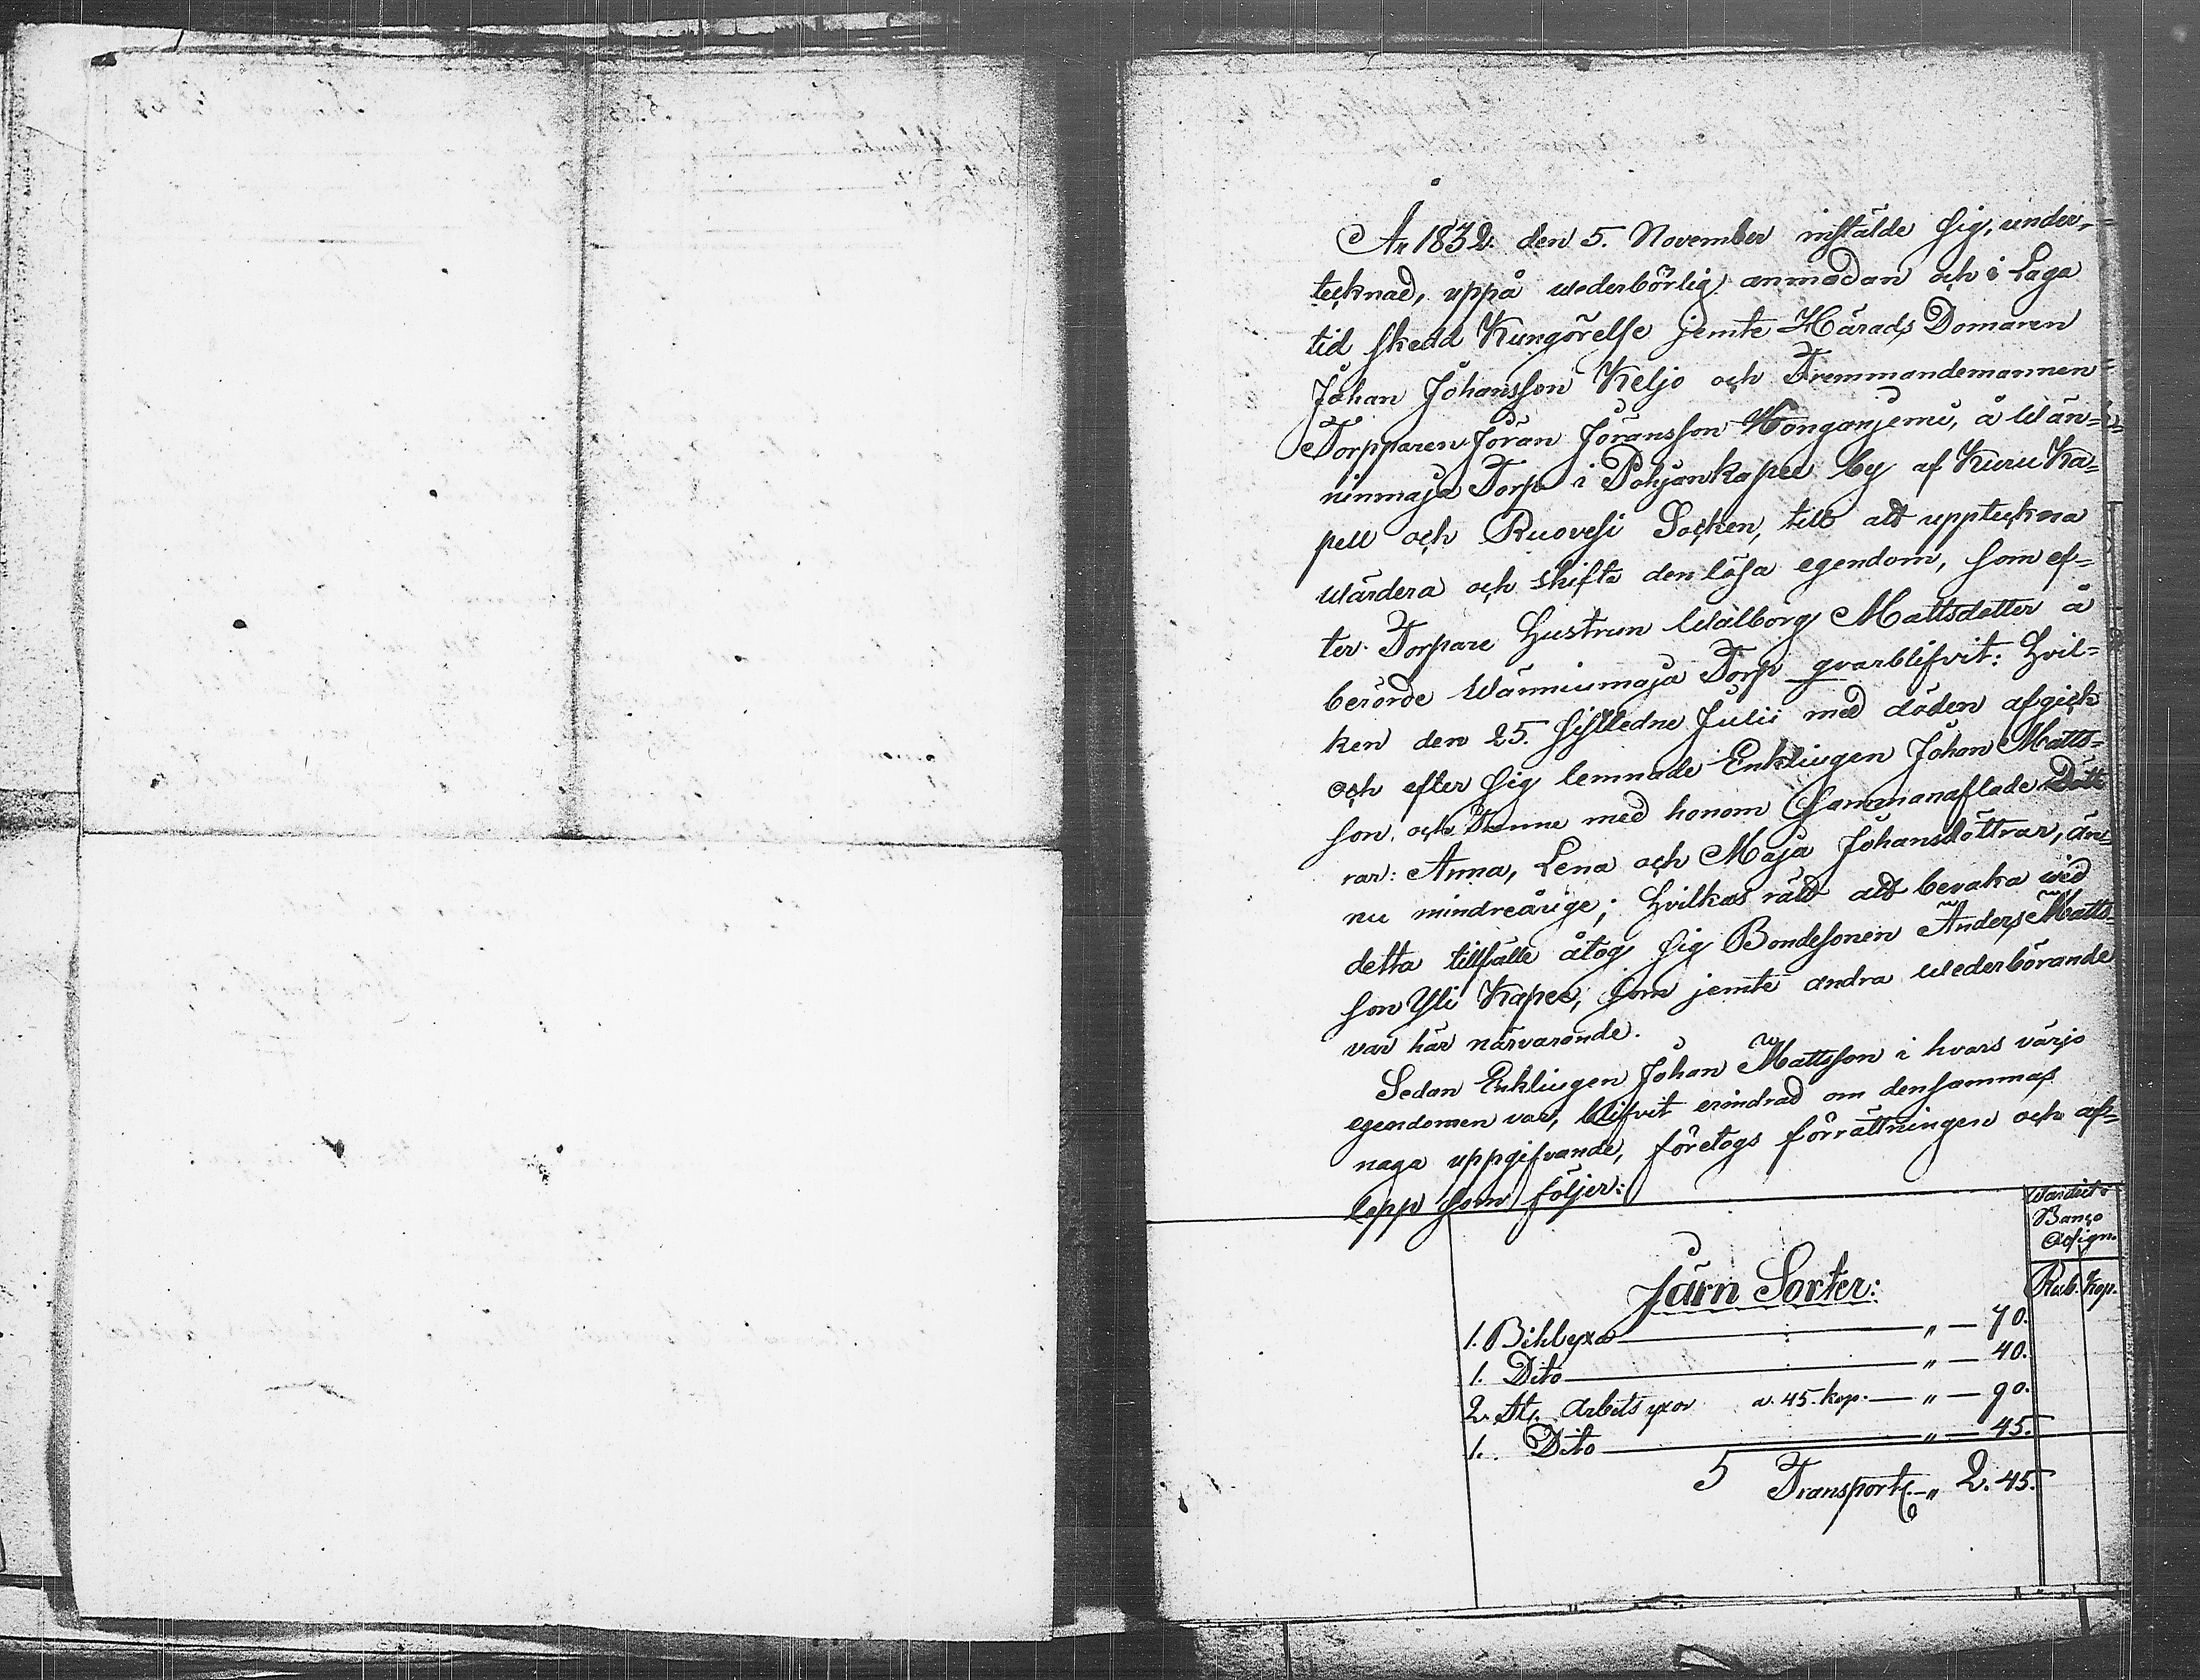 År 1832 den 5. November instälde sig, under-
tecknad, uppå wederbörlig anmodan och i Laga
tid skedd Kungörelse jemte Härads Domaren
Johan Johansson Keljo och Nremmandemannen
Torpparen Jöran Jöransson Konganjemi, å Wän-
ninmaja Torp i Pohjankapee by af Kuru Ka-
pell och Ruovesi Socken, till att uppteckna
wärdera och skifte den lösa egendom, som ef-
ter Torpare Hustrun Walborg Mattsdotter å
berörde Wänninmaja Torp qvarblifvit: Hvil-
ken den 25. sistledne Julii med döden afgick
och efter sig lemnade Enklingen Johan Matts-
son, och tenne med honom sammanaflade Dött
rar: Anna, Lena och Maja Johansdöttrar, än-
nu mindreårige; Hvilkas rätt att bevaka wid
detta tillfälle åtog sig Bondesonen Anders Matts-
son Yli Kapee, som jemte andra wederbörande
var här närvarande.
Sedan Enklingen Johan Mattsson i hvars värjo
egendomen var, blifvit erindrad om densammas
naga uppgifvande, företogs förrättningen och af-
lopp som följer:
Wärdiet i
Banco
Assign.
Järn Sorter:
Rub. Kop.
1. Bihlyxa " 70.
1. Dito " 40.
2. St. Arbets yxor a. 45. kop. " 90.
1. Dito " 45.
5 Transport " 2. 45.